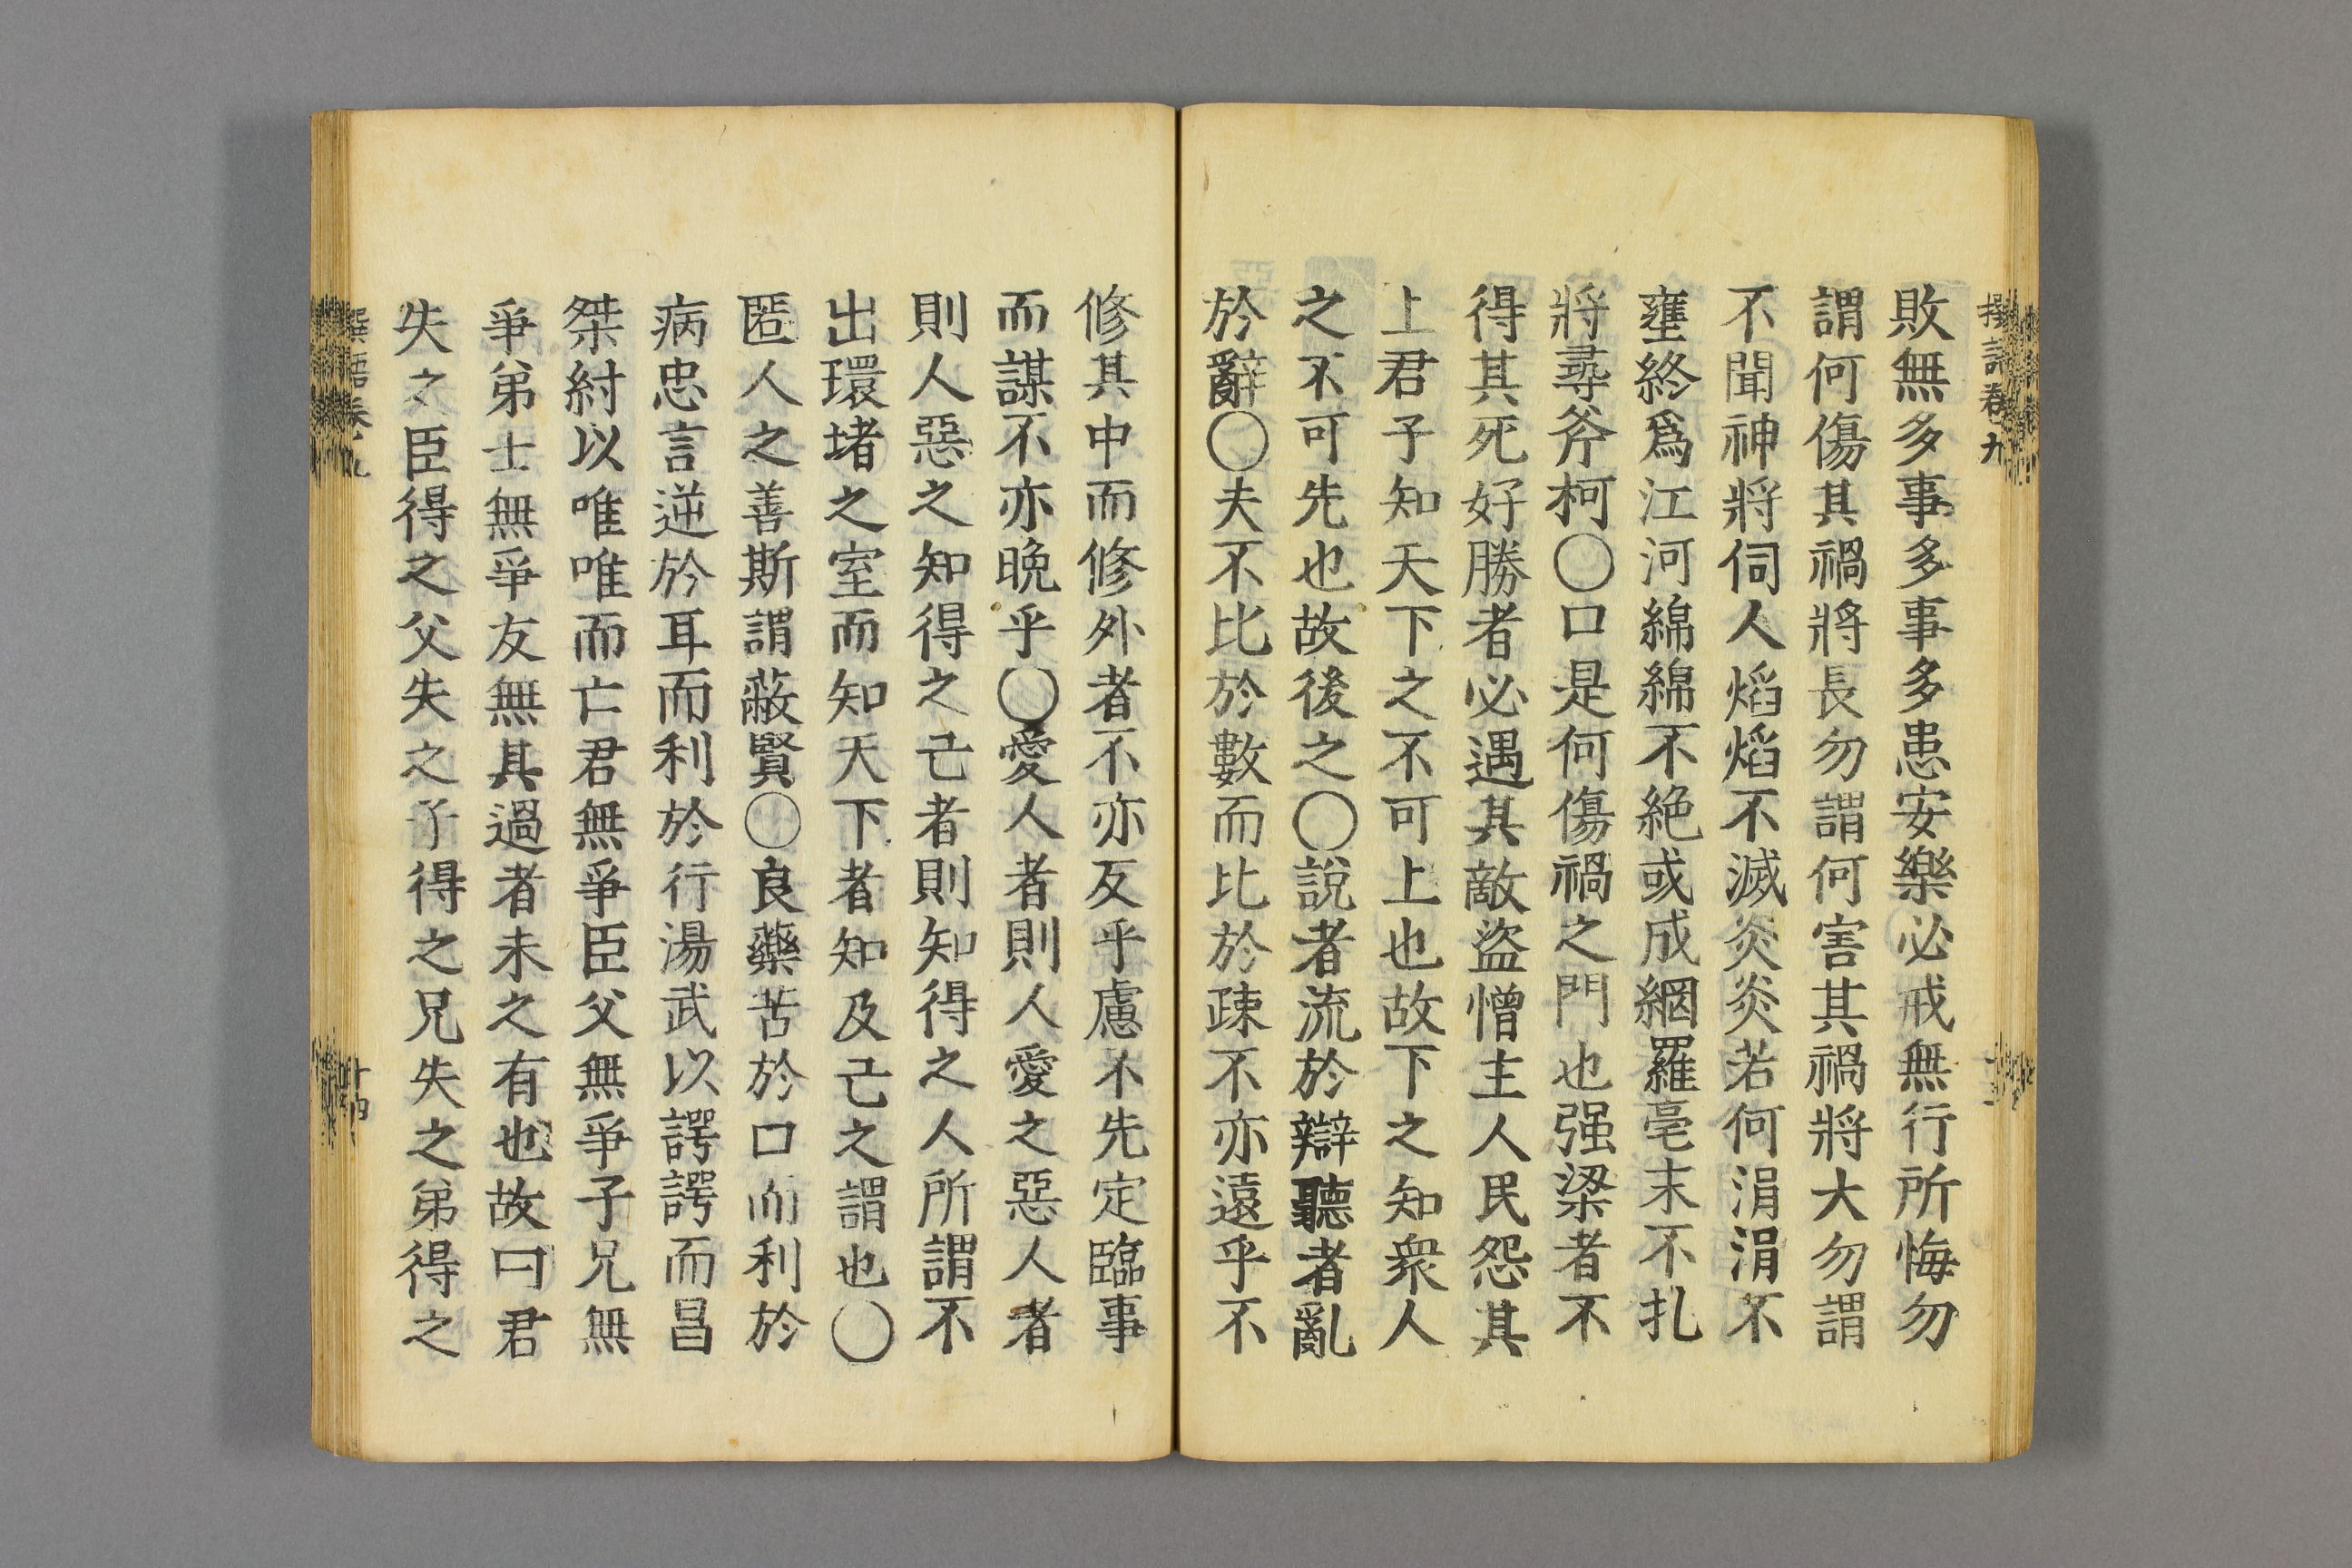 敗無多事多事多患安樂必戒無行所悔勿
謂何傷其禍將長勿謂何害其禍將大勿謂
不聞神將伺人焰焰不滅炎炎若何涓涓不
壅終爲江河綿綿不絶或成網羅毫末不扎
將尋斧柯〇口是何傷禍之門也强梁者不
得其死好勝者必遇其敵盜憎主人民怨其
上君子知天下之不可上也故下之知衆人
之不可先也故後之〇說者流於辯聽者亂
於辭〇夫不比於數而比於疎不亦遠乎不
修其中而修外者不亦反乎慮不先定臨事
而謀不亦晩乎〇愛人者則人愛之惡人者
則人惡之知得之己者則知得之人所謂不
出環堵之室而知天下者知及己之謂也〇
匿人之善斯謂蔽賢〇良藥苦於口而利於
病忠言逆於耳而利於行湯武以諤諤而昌
桀紂以唯唯而亡君無爭臣父無爭子兄無
爭弟士無爭友無其過者未之有也故曰君
失之臣得之父失之子得之兄失之弟得之
撰語卷九
十四